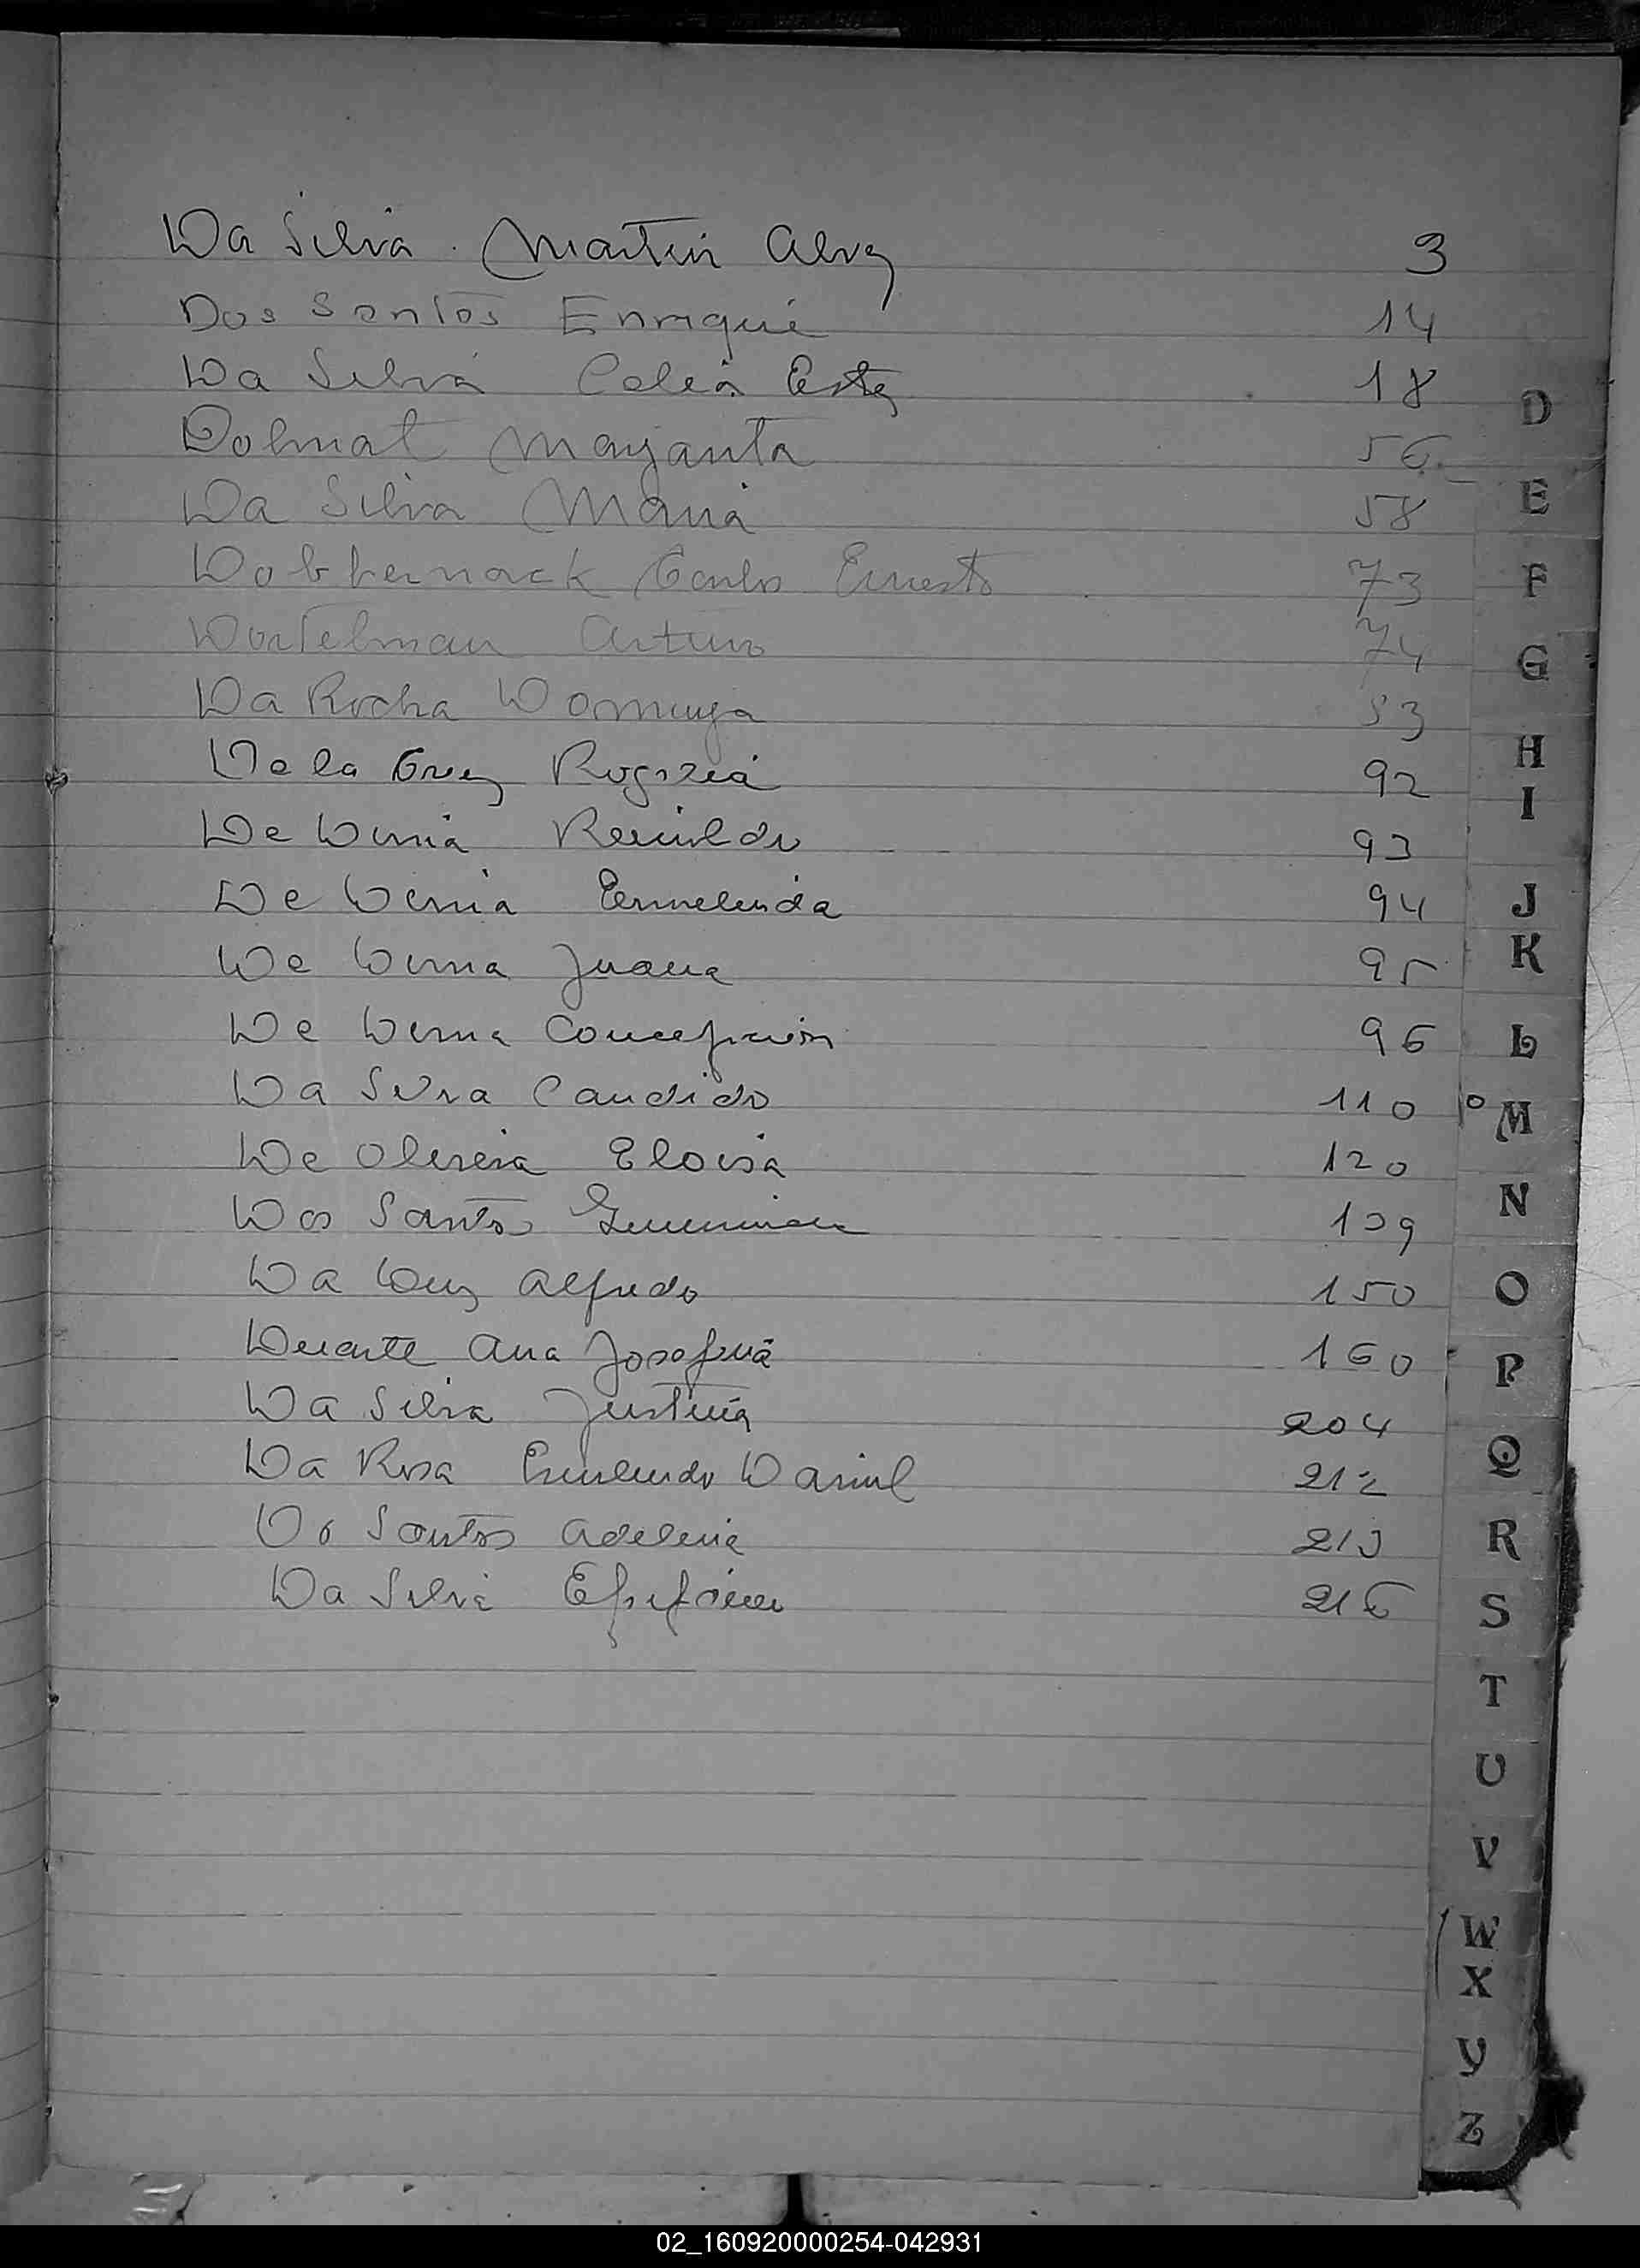 Da Silva Martin Alvez 3
Dos Santos Enrique 14
Da Silva Celia Ester 18
Dolmat Margarita 56
Da Silva Maria 58
Dobbernack Carlos Ernesto 73
Dortelman Arturo 74
Da Rocha Dominga 83
De la Cruz Rogelia 92
De Lima Reinildo 93
De Lima Ermelinda 94
De Lima Juana 95
De Lima Concepcion 96
Da Silva Candido 110
De Oliveira Eloisa 120
Dos Santos 139
Da Luz Alfredo 150
Duarte Ana Josefina 160
Da Silva Justina 204
Da Rosa Ermelindo Daniel 212
Dos Santos Adelina 213
Da Silva Epifanio 216
D
E
F
G
H
I
J
K
L
M
N
O
P
Q
R
S
T
U
V
W
X
Y
Z
02_160920000254-042931